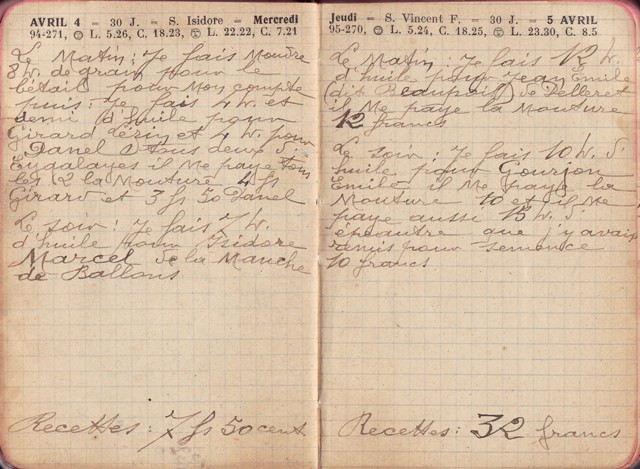 AVRIL 4 — 30 J. — S. Isidore — Mercredi
94-271, L. 5.26, C. 18.23, L. 22.22, C. 7.21
Le Matin: Je fais Moudre
8 W. de grain pour le
bétail pour Mon compte
puis: Je fais 4 W. et
demi d'huile pour
Girard et 4 W. pour
Danel tous deux d'
il Me paye tous
les 2 la Mouture 4 fs
Girard et 3 fs 50 Danel
Le soir: Je fais 7 W.
d'huile pour Isidore
Marcel de la Manche
de Ballons
Recettes: 7 fs 50 cent
Jeudi — S. Vincent F. — 30 J. — 5 AVRIL
95-270, L. 5.24, C. 18.25, L. 23.30, C. 8.5
Le Matin: Je fais 12 W.
d'huile pour Jean Emile
(dit Beaupoil) de Pelleret
il Me paye la Mouture
12 francs
Le soir: Je fais 10 W. d'
huile pour Gourjon
Emile il Me paye la
Mouture 10 et il Me
paye aussi 15 W. d'
épeautre que j'y avais
remis pour semence
10 francs
Recettes: 32 francs